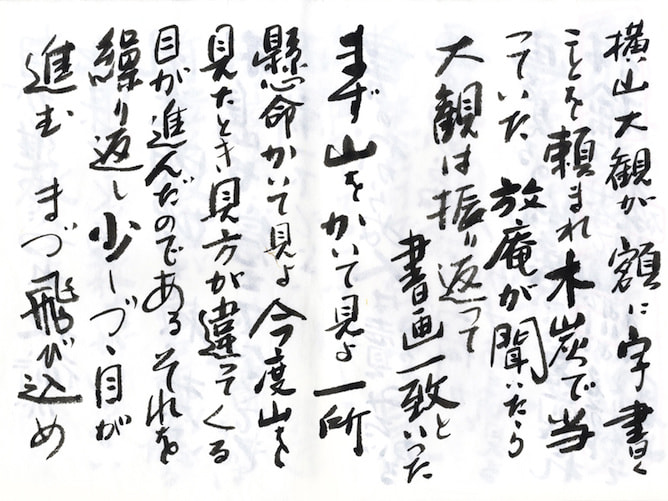 横山大観が額に字書く
ことを頼まれ木炭で当
っていた 放庵が聞いたら
大観は振り返って
書画一致と
いった
まず山をかいて見よ一所
懸命かいて見よ今度山を
見たとき見方が違ってくる
目が進んだのである それを
繰り返し少しづゝ目が
進む まづ飛び込め